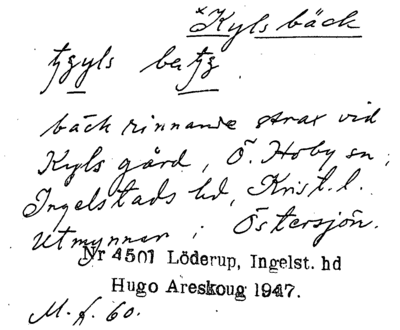 *Kyls bäck
bäck rinnande strax vid
Kyls gård, Ö. Hoby sn,
Ingelstads hd, Krist. l.
Utmynnar i Östersjön.
Nr 4501 Löderup, Ingelst. hd
Hugo Areskoug 1947.
M. f. 60.